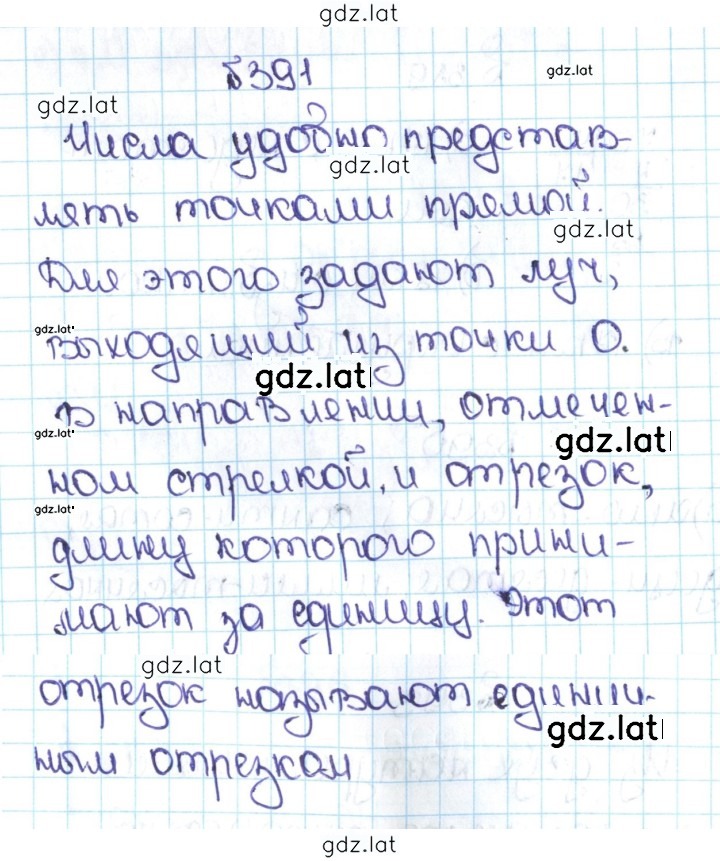 gdz.lat
№391
gdz.lat
gdz.lat
Числа удобно представ-
gdz.lat
лять точками прямой.
gdz.lat
Для этого задают луч,
gdz.lat
выходящий из точки О.
gdz.lat
в направлении, отмечен-
gdz.lat
gdz.lat
ном стрелкой, и отрезок,
gdz.lat
длину которого прини-
мают за единицу. Этот
gdz.lat
отрезок называют единич-
gdz.lat
ным отрезком
gdz.lat